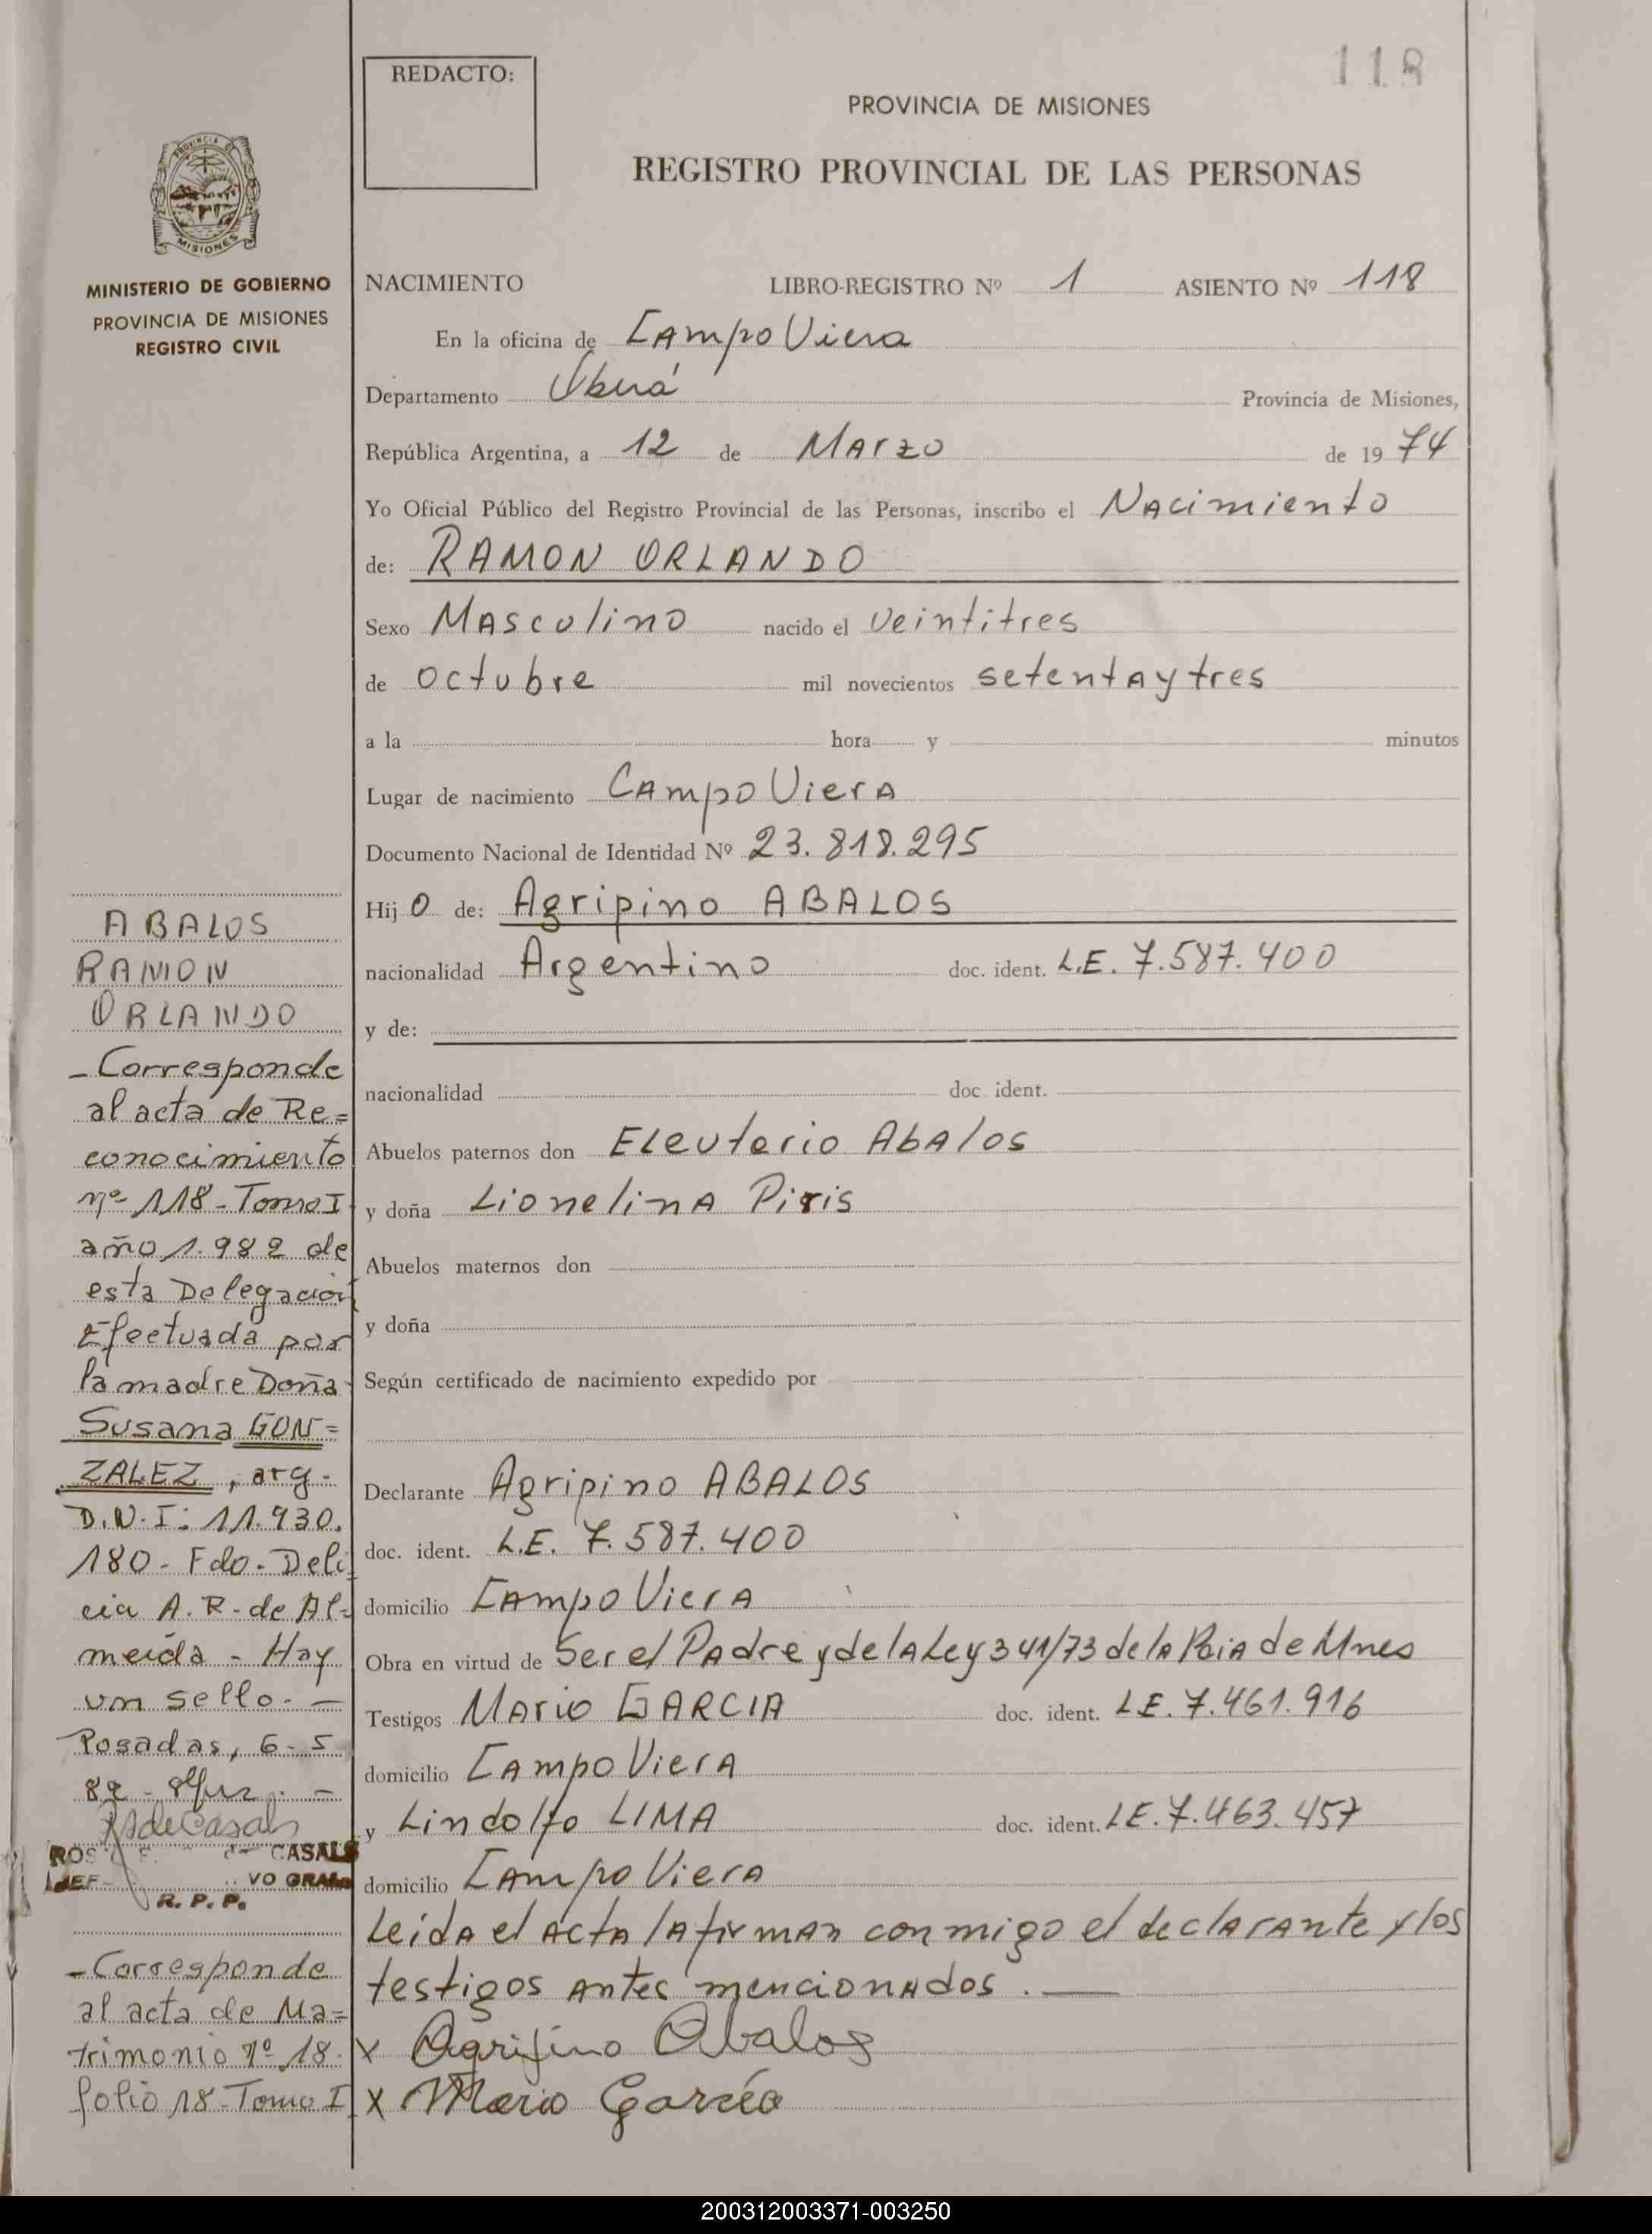 118
REDACTO:
PROVINCIA DE MISIONES
REGISTRO PROVINCIAL DE LAS PERSONAS
PROVINCIA DE
MISIONES
MINISTERIO DE GOBIERNO
PROVINCIA DE MISIONES
REGISTRO CIVIL
NACIMIENTO LIBRO-REGISTRO Nº 1 ASIENTO Nº 118
En la oficina de Campo Viera
Departamento Oberá Provincia de Misiones,
República Argentina, a 12 de Marzo de 1974
Yo Oficial Público del Registro Provincial de las Personas, inscribo el Nacimiento
de: RAMON ORLANDO
Sexo Masculino nacido el veintitres
de octubre mil novecientos setenta y tres
a la hora y minutos
Lugar de nacimiento Campo Viera
Documento Nacional de Identidad Nº 23.818.295
Hijo de: Agripino ABALOS
nacionalidad Argentino doc. ident. L.E. 7.587.400
y de:
nacionalidad doc. ident.
Abuelos paternos don Eleuterio Abalos
y doña Lionelina Piris
Abuelos maternos don
y doña
Según certificado de nacimiento expedido por
Declarante Agripino ABALOS
doc. ident. L.E. 7.587.400
domicilio Campo Viera
Obra en virtud de Ser el Padre y de la Ley 341/73 de la Pcia de Mnes
Testigos Mario GARCIA doc. ident. L.E. 7.461.916
domicilio Campo Viera
y Lindolfo LIMA doc. ident. LE. 7.463.457
domicilio Campo Viera
Leida el acta la firman conmigo el declarante y los
testigos antes mencionados.
x Agripino Abalos
x Mario García
ABALOS
RAMON
ORLANDO
- Corresponde
al acta de Re=
conocimiento
nº 118 - Tomo I
año 1.982 de
esta Delegación
Efectuada por
la madre Doña
Susana GON=
ZALEZ, arg.
D.N.I: 11.930.
180 - Fdo - Deli
cia A. R. de Al=
meida - Hay
un sello. -
Posadas, 6-5
82 -
CASALS
R. P. P.
- Corresponde
al acta de Ma=
trimonio nº 18
folio 18 - Tomo I
200312003371-003250